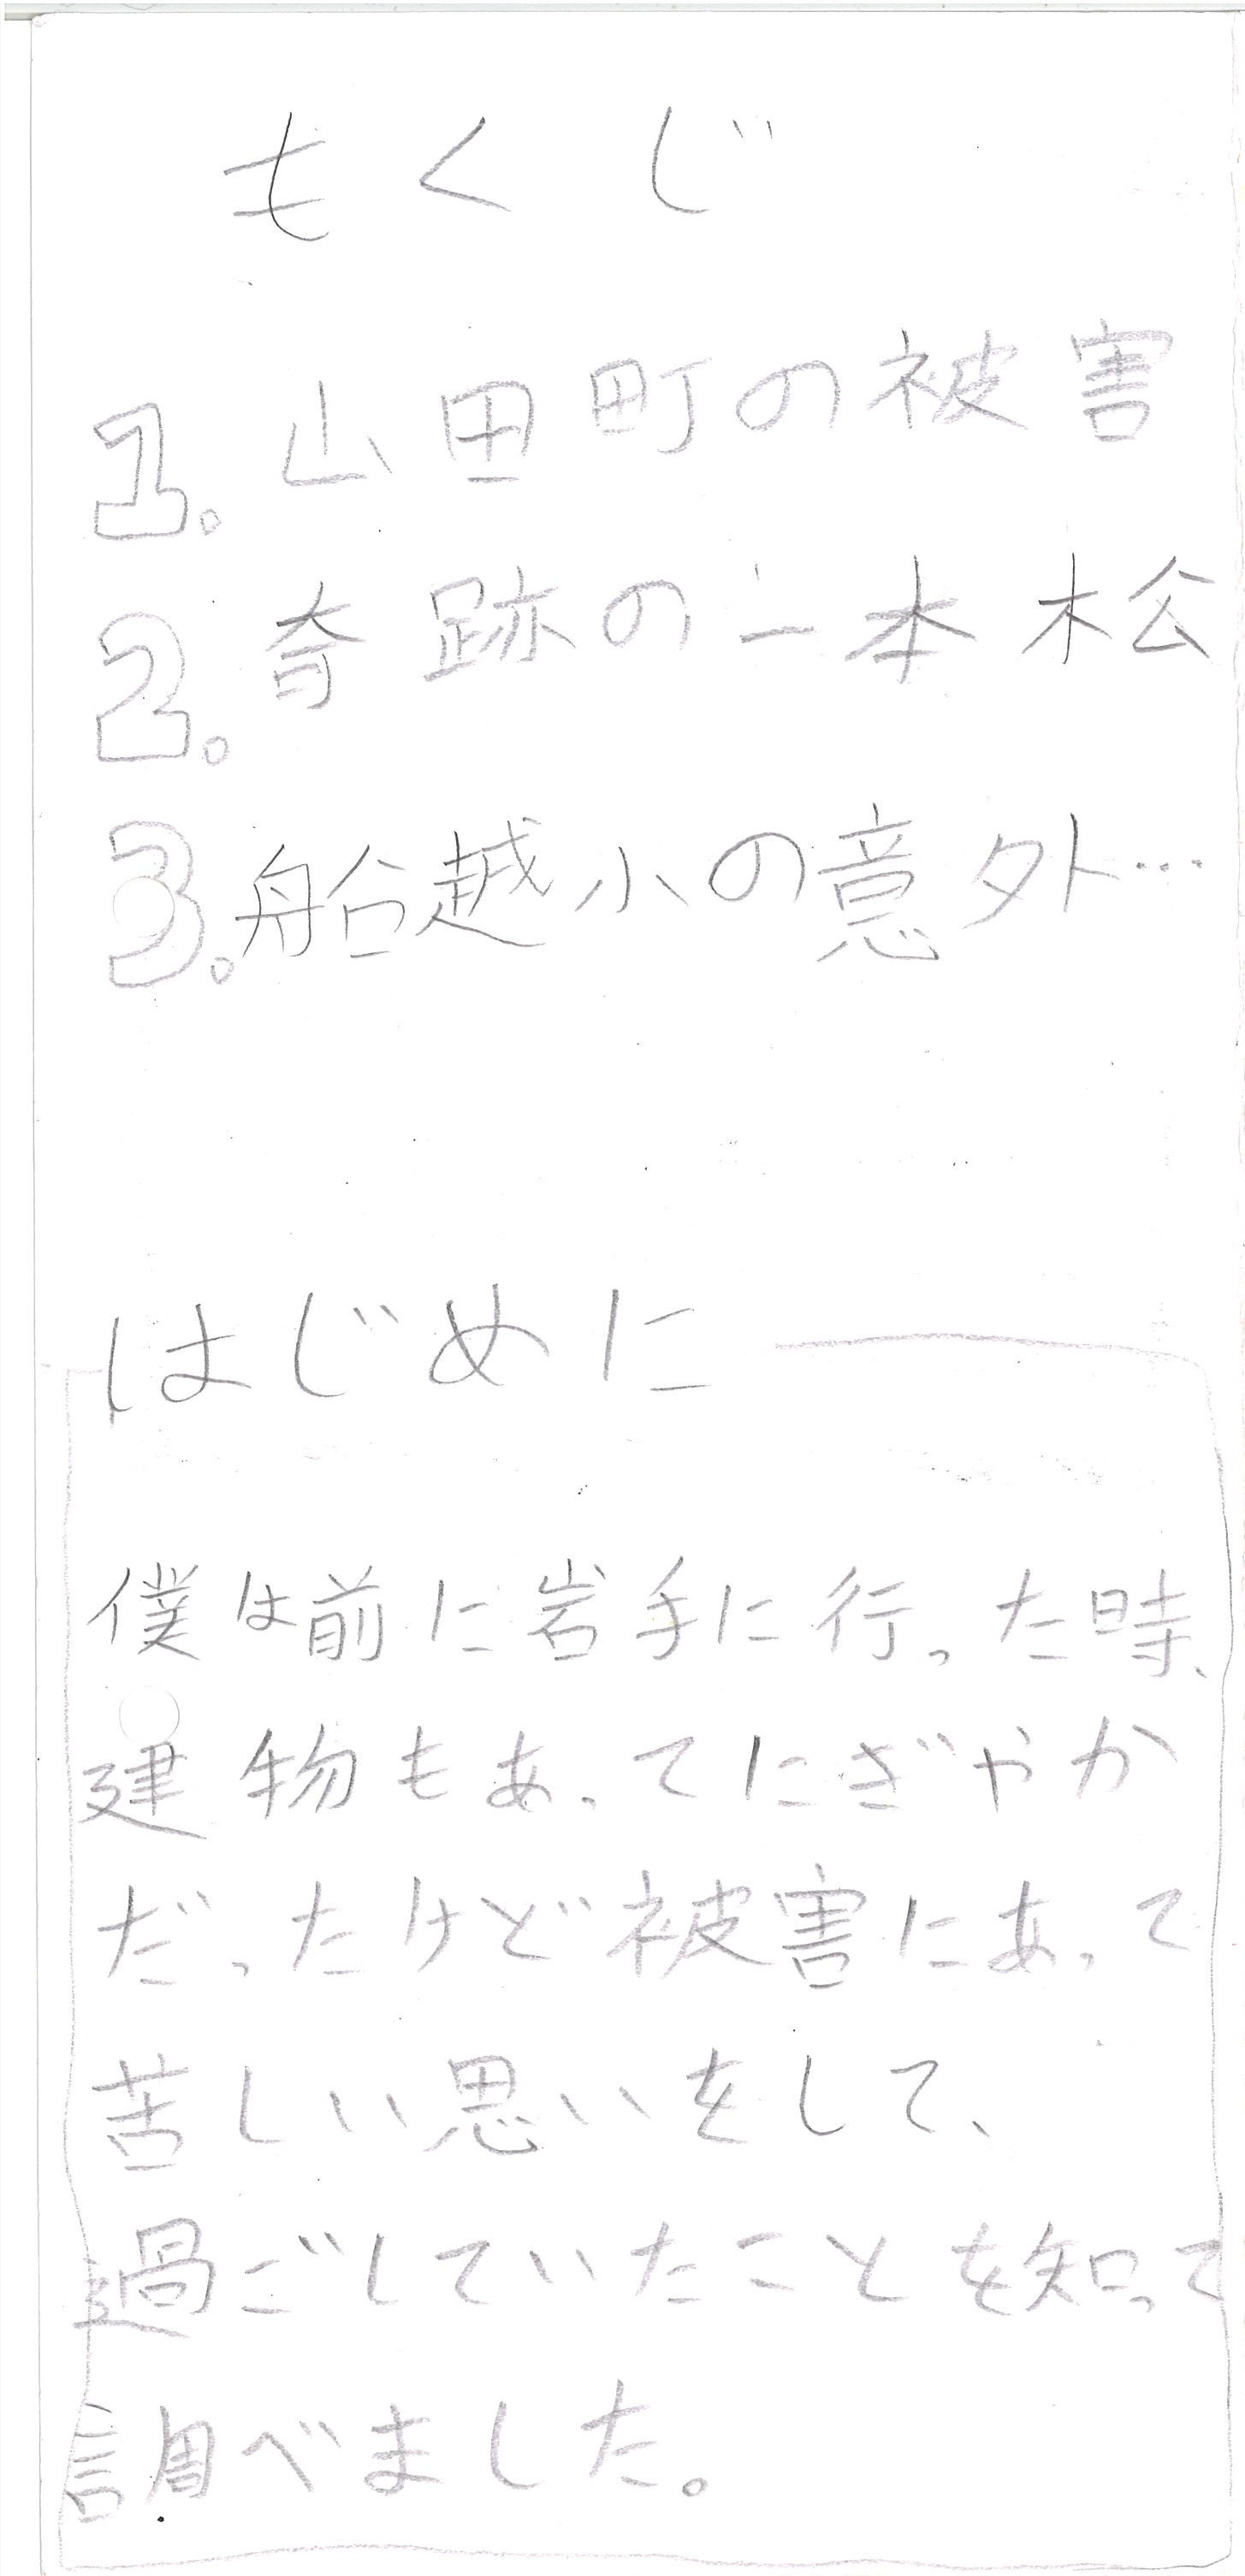 もくじ
1. 山田町の被害
2. 奇跡の一本松
3. 船越小の意外…
はじめに
僕は前に岩手に行った時、
建物もあってにぎやか
だったけど被害にあって
苦しい思いをして、
過ごしていたことを知って
調べました。